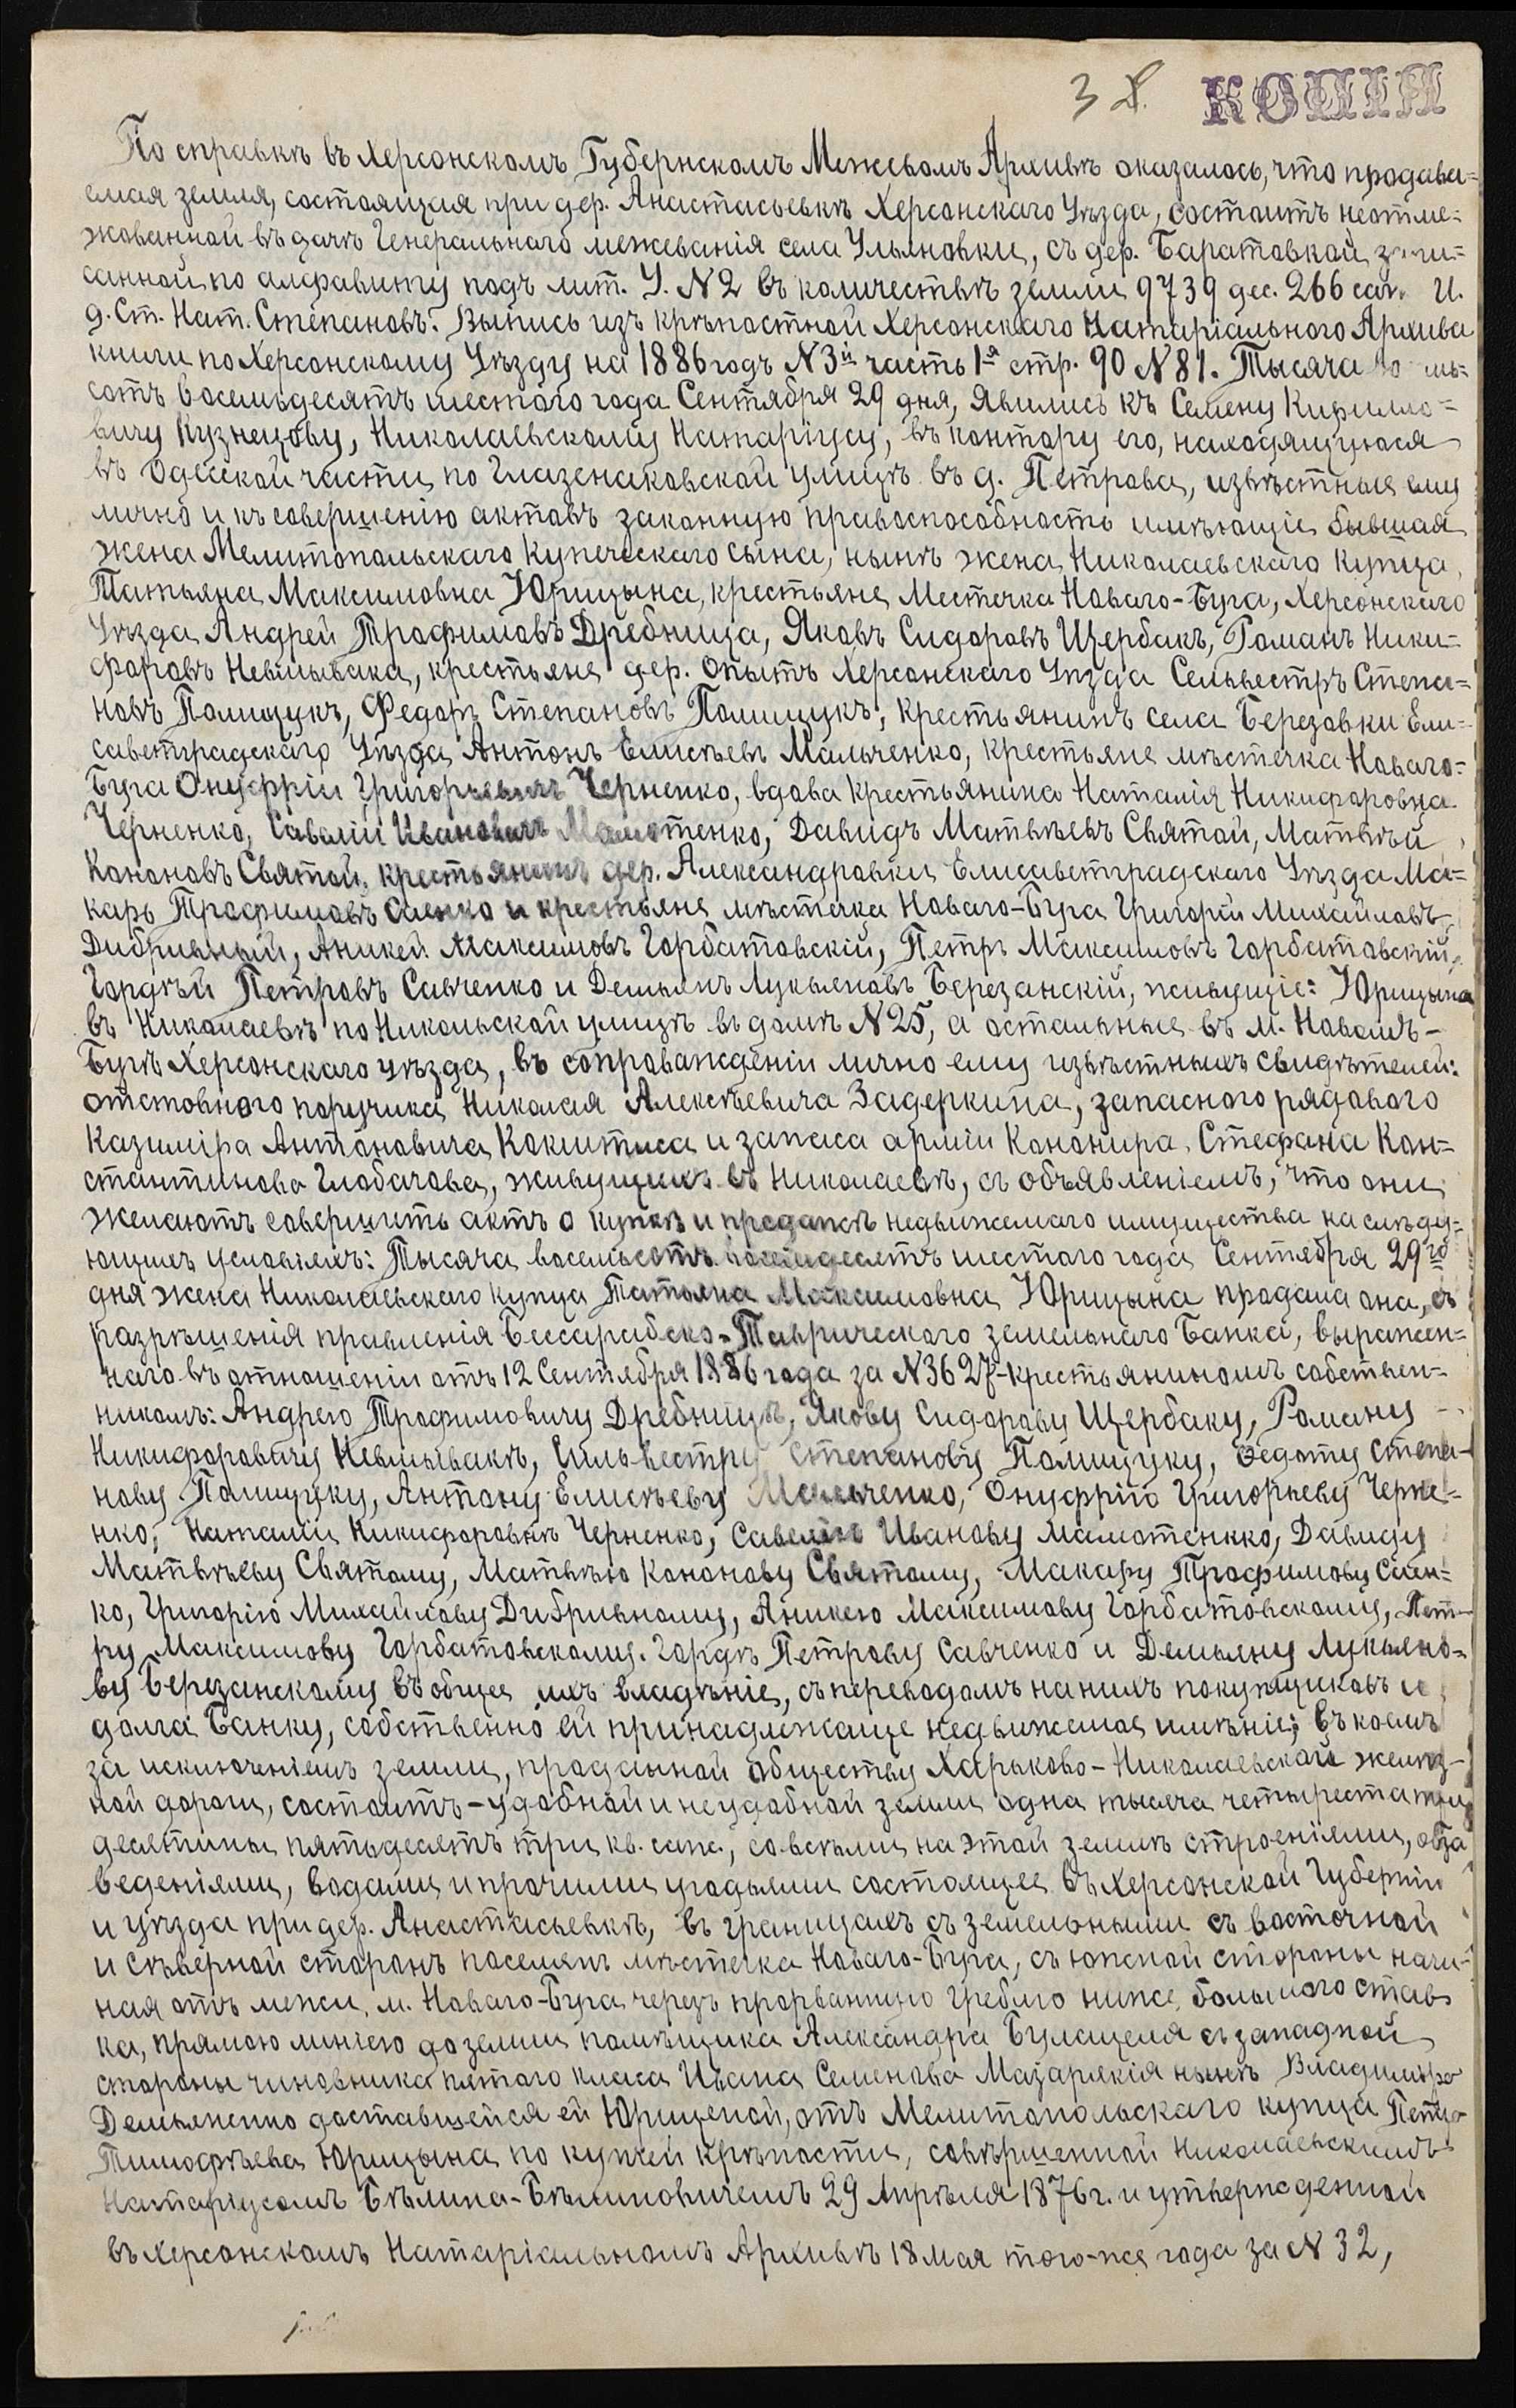 3 8. КОПІЯ
По справкѣ въ Херсонскомъ Губернскомъ Межевомъ Архивѣ оказалось, что продава=
емая земля, состоящая при дер. Анастасьевкѣ Херсонскаго Уѣзда, состоитъ неотме=
жованной въ дачѣ Генеральнаго межеванія села Ульяновки, съ дер. Баратовкой, запи=
санной по алфавиту подъ лит. У. N 2 въ количествѣ земли 9739 дес. 266 саж. И.
д. Ст. Нот. Степановъ. Выпись изъ крѣпостной Херсонскаго Нотаріальнаго Архива
книги по Херсонскому Уѣзду на 1886 годъ N 3й часть 1я стр. 90 N 81. Тысяча восемь=
сотъ восемьдесятъ шестого года Сентября 29 дня, явились къ Семену Кирилло=
вичу Кузнецову, Николаевскому Нотаріусу, въ контору его, находящуюся
въ Одесской части, по Глазенаповской улицѣ въ д. Петрова, извѣстные ему
лично и къ совершенію актовъ законную правоспособность имѣющіе, бывшая
жена Мелитопольскаго Купеческаго сына, нынѣ жена Николаевскаго купца,
Татьяна Максимовна Юрицына, крестьяне Местечка Новаго-Буга, Херсонскаго
Уѣзда Андрей Трофимовъ Дребница, Яковъ Сидоровъ Щербакъ, Романъ Ники=
форовъ Невмывака, крестьяне дер. Опытъ Херсонскаго Уѣзда Сельвестръ Степа=
новъ Полищукъ, Федоръ Степановъ Полищукъ, крестьянинъ села Березовки Ели=
саветградскаго Уѣзда Антонъ Елисѣевъ Мальченко, крестьяне мѣстечка Новаго=
Буга Онуфрій Григорьевичъ Черненко, вдова крестьянина Наталія Никифоровна
Черненко, Савелій Ивановичъ Мамотенко, Давидъ Матвѣевъ Святой, Матвѣй
Кононовъ Святой, крестьянинъ дер. Александровки Елисаветградскаго Уѣзда Ма=
каръ Трофимовъ Саенко и крестьяне мѣстечка Новаго-Буга Григорій Михайловъ
Дибривный, Аникей Максимовъ Горбатовскій, Петръ Максимовъ Горбатовскій,
Гордѣй Петровъ Савченко и Демьянъ Лукьяновъ Березанскій, живущіе: Юрицына
въ Николаевѣ по Никольской улицѣ въ домѣ N 25, а остальные въ м. Новомъ-
Бугѣ Херсонскаго уѣзда, въ сопровожденіи лично ему извѣстныхъ свидѣтелей:
отставного поручика Николая Алексѣевича Задеркина, запасного рядоваго
Казиміра Антоновича Кокштиса и запаса арміи Канонира Стефана Кон=
стантинова Глобачова, живущихъ въ Николаевѣ, съ объявленіемъ, что они
желаютъ совершить актъ о куплѣ и продажѣ недвижимаго имущества на слѣду=
ющихъ условіяхъ: Тысяча восемьсотъ восемьдесятъ шестого года Сентября 29го
дня жена Николаевскаго купца Татьяна Максимовна Юрицына продала она, съ
разрѣшенія правленія Бессарабско-Таврическаго земельнаго Банка, выражен=
наго въ отношеніи отъ 12 Сентября 1886 года за N 3627-крестьяниномъ собствен=
никомъ: Андрею Трофимовичу Дребницѣ, Якову Сидорову Щербаку, Роману
Никифоровичу Невмывакѣ, Сильвестру Степанову Полищуку, Федоту Степа=
нову Полищуку, Антону Елисѣеву Мальченко, Онуфрію Григорьеву Черне=
нко, Наталіи Никифоровнѣ Черненко, Савелію Иванову Мамотенкко, Давиду
Матвѣеву Святому, Матвѣю Кононову Святому, Макару Трофимову Саен=
ко, Григорію Михайлову Дибривному, Аникею Максимову Горбатовскому, Пет=
ру Максимову Горбатовскому. Гордѣ Петрову Савченко и Демьяну Лукьяно=
ву Березанскому въ общее ихъ владѣніе, съ переводомъ на нихъ покупщиковъ и
долга Банку, собственно ей принадлежаще недвижемае имѣніе; въ коемъ
за исключеніемъ земли, проданной обществу Харьково-Николаевской желѣз=
ной дороги, состоитъ-удобной и неудобной земли одна тысяча четыреста три
десятины пятьдесятъ три кв. саж., со всѣми на этой землѣ строеніями, обза
веденіями, водами и прочими угодьями состоящее въ Херсонской Губерніи
и уѣзда при дер. Анастасьевкѣ, въ границахъ съ земельными съ восточной
и сѣверной сторонъ поселянъ мѣстечка Новаго-Буга, съ южной стороны начи=
ная отъ межи м. Новаго-Буга черезъ прорванную греблю ниже большого став
ка, прямою линіею до земли помѣщика Александра Булацеля съ западной
стороны чиновника пятаго класа Ивана Семенова Мазаракія нынѣ Владиміра
Демьяненко доставшейся ей Юрициной, отъ Мелитопольскаго купца Петра
Тимофѣева Юрицына по купчей крѣпости, совѣршенной Николаевскимъ
Нотаріусомъ Бѣлина-Бѣлиновичемъ 29 Апрѣля 1876 г. и утвержденной
въ Херсонскомъ Нотаріальномъ Архивѣ 18 Мая того-же года за N 32,